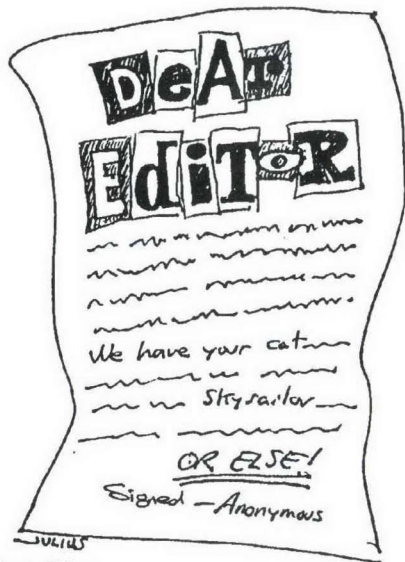 DeAr
EdiToR
We have your cat
Skysailor
OR ELSE!
Signed - Anonymous
JULIUS